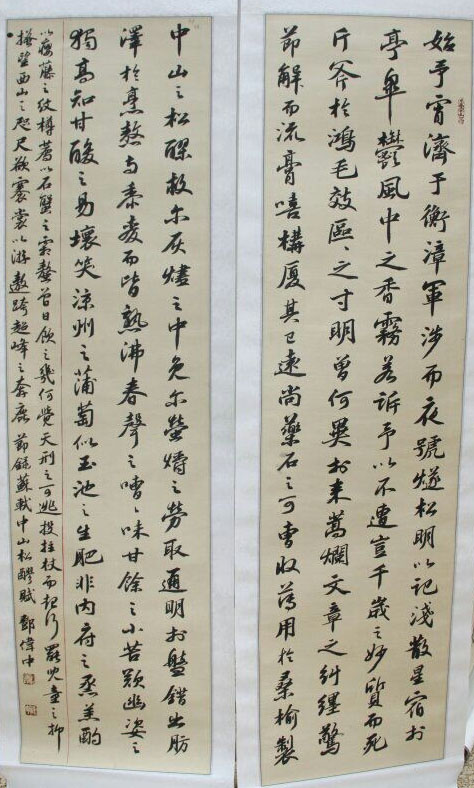 始予宵濟于衡漳軍涉而夜號燧松明以記淺散星宿於
亭皋鬱風中之香霧若訴予以不遭豈千歲之妙質而死
斤斧於鴻毛效區、之寸明曾何異於束蒿爛文章之糾纏驚
節解而流膏嘻構廈其已遠尚藥石之可曹收薄用於桑榆製
中山之松醪救尔灰燼之中免尔螢爝之勞取通明於盤錯出肪
澤於烹熬与黍麥而皆熟沸春聲之嘈、味甘餘之小苦歎幽姿之
獨高知甘酸之易壞笑涼州之蒲萄似玉池之生肥非内府之烝羔酌
以癭藤之紋樽薦以石蟹之霜螯曾日飲之幾何覺天刑之可逃投拄杖而起行罷児童之抑
搔望西山之咫尺欲褰裳以游遨跨超峰之奔鹿 節錄蘇軾中山松醪賦 鄭偉中